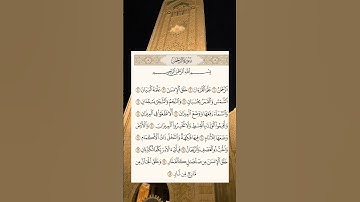 سُورَةُ الرَّحْمَٰن
بِسْمِ اللَّهِ الرَّحْمَٰنِ الرَّحِيمِ
الرَّحْمَٰنُ ١ عَلَّمَ الْقُرْءَانَ ٢ خَلَقَ الْإِنسَٰنَ ٣ عَلَّمَهُ الْبَيَانَ ٤
الشَّمْسُ وَالْقَمَرُ بِحُسْبَانٍ ٥ وَالنَّجْمُ وَالشَّجَرُ يَسْجُدَانِ ٦
وَالسَّمَاءَ رَفَعَهَا وَوَضَعَ الْمِيزَانَ ٧ أَلَّا تَطْغَوْا فِي الْمِيزَانِ ٨
وَأَقِيمُوا الْوَزْنَ بِالْقِسْطِ وَلَا تُخْسِرُوا الْمِيزَانَ ٩ وَالْأَرْضَ
وَضَعَهَا لِلْأَنَامِ ١٠ فِيهَا فَٰكِهَةٌ وَالنَّخْلُ ذَاتُ الْأَكْمَامِ ١١
وَالْحَبُّ ذُو الْعَصْفِ وَالرَّيْحَانُ ١٢ فَبِأَيِّ ءَالَاءِ رَبِّكُمَا تُكَذِّبَانِ ١٣
خَلَقَ الْإِنسَٰنَ مِن صَلْصَٰلٍ كَالْفَخَّارِ ١٤ وَخَلَقَ الْجَانَّ مِن
مَّارِجٍ مِّن نَّارٍ ١٥